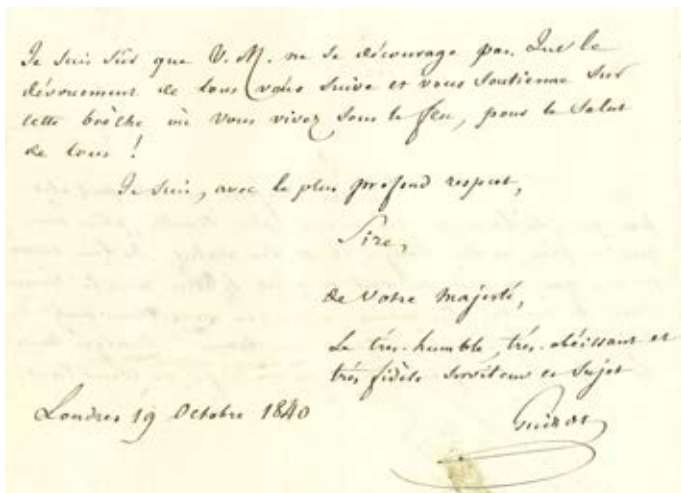 Je suis sûr que V. M. ne se décourage pas. Que le
dévouement de tous vous suive et vous soutienne sur
cette brêche où vous vivez sous le feu, pour le salut
de tous !
Je suis, avec le plus profond respect,
Sire,
de Votre Majesté,
Le très-humble, très-obéissant et
très fidèle serviteur et sujet
Londres 19 Octobre 1840
Guizot